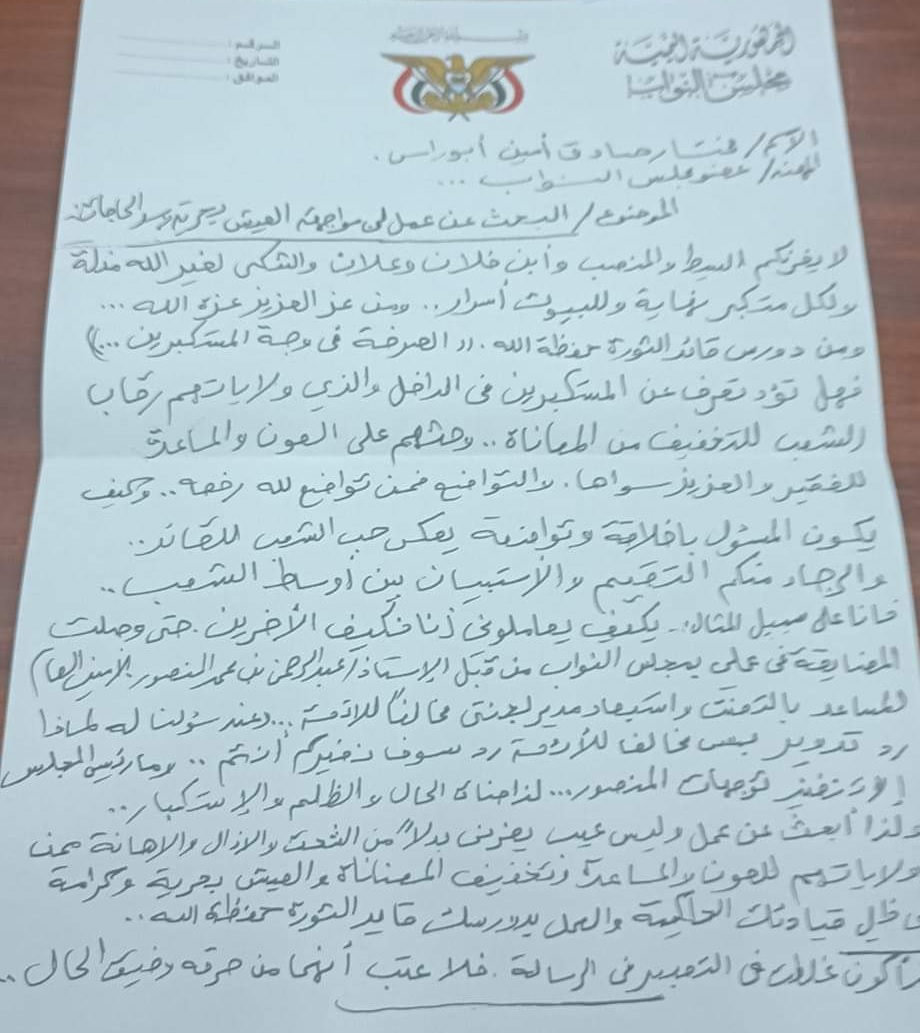 الجمهورية اليمنية
مجلس النواب
بسم الله الرحمن الرحيم
الرقم :
التاريخ :
الموافق :
الاسم/ مختار صادق أمين أبوراس .
المهنة/ عضو مجلس النواب ...
الموضوع/ البحث عن عمل لي مواجهة العيش بحرية وسد الحاجات
لا يغرنكم البسط والمنصب وأبن فلان وعلان والشكى لغير الله مذلة
ولكل متكبر نهاية وللبيوت أسرار .. ومن عز العزيز عزه الله ...
ومن دورس قائد الثورة حفظة الله .(( الصرخة في وجة المستكبرين ...))
فهل تؤد تعرف عن المستكبرين في الداخل والذي ولاياتهم رقاب
الشعب للتخفيف من المعاناة .. وحثهم على العون والمساعدة
للفقير والعزيز سواها . والتواضع فمن تواضع لله رفعه .. وكيف
يكون المسؤل باخلاقة وتواضعة يعكس حب الشعب للقائد ..
والرجاء منكم التقيم والأستبيان بين أوساط الشعب ..
فانا على سبيل المثال . يكيف يعاملوني أنا فكيف الأخرين . حتى وصلت
المضايقة في عملي بمجلس النواب من قبل الاستاذ/ عبدالرحمن بن محمد المنصور (الامين العام)
المساعد بالتعنت واستبعاد مدير لجنتي مخالفاً للائحة ... وعند سؤلنا له لماذا
رد تدوير ليس مخالف للائحة رد سوف نخبركم أنتم .. وما رئيس المجلس
إلا تنفيذ توجهات المنصور ... لذا ضاق الحال والظلم والإستكبار ..
ولذا أبحث عن عمل وليس عيب يعزني بدلاً من الشحت والاذلال والاهانة ممن
ولاياتهم للعون والمساعدة وتخفيف المعاناة والعيش بحرية وكرامة
في ظل قيادتك الحكيمة والعمل بدورسك قايد الثورة حفظة الله ..
أكون غلطت في التعبير في الرسالة . فلا عتب أنهما من حرقه وضيق الحال ..